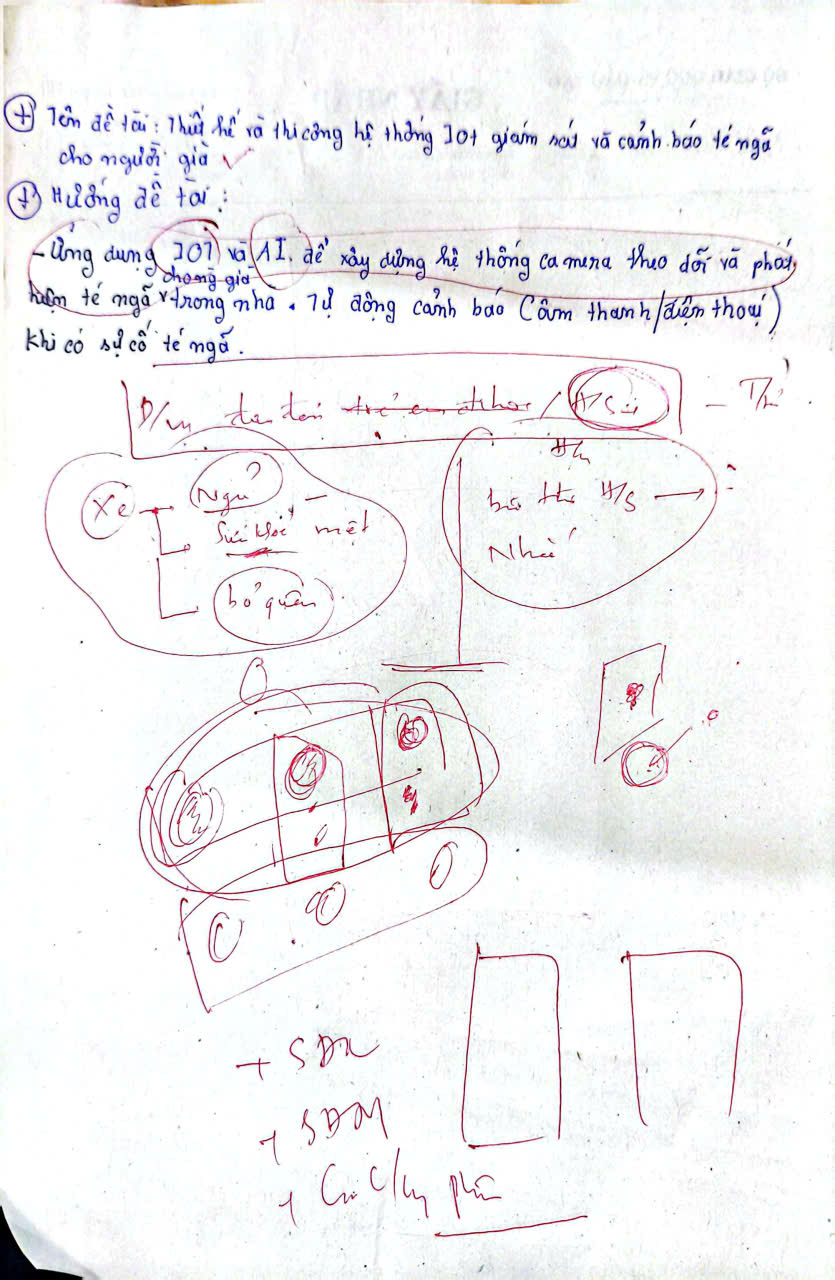 + Tên đề tài: Thiết kế và thi công hệ thống IOT giám sát và cảnh báo té ngã
cho người già
+ Hướng đề tài:
- Ứng dụng IOT và AI để xây dựng hệ thống camera theo dõi và phát
cho ng-già
hiện té ngã trong nhà. Tự động cảnh báo (âm thanh/điện thoại)
khi có sự cố té ngã.
Xe
Ngủ
Sức khỏe mệt
bỏ quên
Nhà
+ SDL
+ SDM